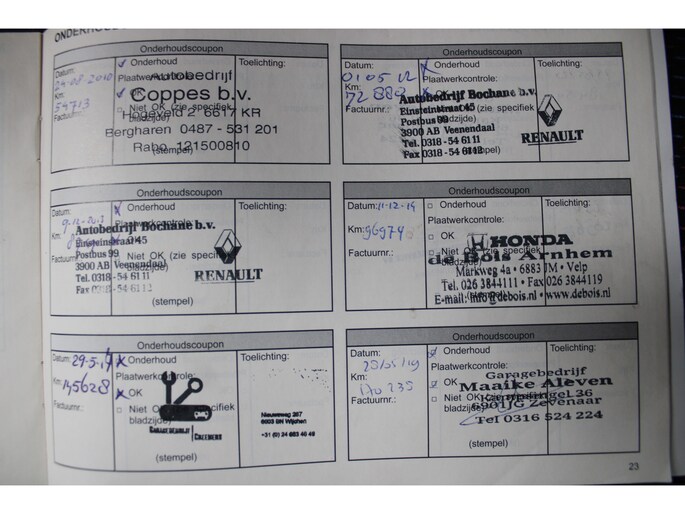 Onderhoudscoupon
Datum: 24-08-2010
Km: 54713
Factuurnr.:
Onderhoud
Plaatwerkcontrole:
OK
Niet OK (zie specifiek
bladzijde)
Toelichting:
Autobedrijf
Coppes b.v.
Hogeveld 2 6617 KR
Bergharen 0487 - 531 201
Rabo 121500810
(stempel)
Onderhoudscoupon
Datum: 01 05 12
Km: 72 888
Factuurnr.:
Onderhoud
Plaatwerkcontrole:
OK
Niet OK (zie specifiek
bladzijde)
Toelichting:
Autobedrijf Bochane b.v.
Einsteinstraat 45
Postbus 99
3900 AB Veenendaal
Tel. 0318 - 54 61 11
Fax 0318 - 54 61 12
RENAULT
(stempel)
Onderhoudscoupon
Datum:
Km:
Factuurnr.:
Onderhoud
Plaatwerkcontrole:
OK
Niet OK (zie specifiek
bladzijde)
Toelichting:
Autobedrijf Bochane b.v.
Einsteinstraat 45
Postbus 99
3900 AB Veenendaal
Tel. 0318 - 54 61 11
Fax 0318 - 54 61 12
RENAULT
(stempel)
Onderhoudscoupon
Datum: 11-12-14
Km: 96974
Factuurnr.:
Onderhoud
Plaatwerkcontrole:
OK
Niet OK (zie specifiek
bladzijde)
Toelichting:
HONDA
de Bois Arnhem
Markweg 4a • 6883 JM • Velp
Tel. 026 3844111 • Fax 026 3844119
E-mail: info@debois.nl • www.debois.nl
(stempel)
Onderhoudscoupon
Datum: 29-5-17
Km: 145628
Factuurnr.:
Onderhoud
Plaatwerkcontrole:
OK
Niet OK (zie specifiek
bladzijde)
Toelichting:
Garagebedrijf Creemers
Nieuweweg 267
6603 BN Wijchen
(stempel)
Onderhoudscoupon
Datum:
Km: 170 235
Factuurnr.:
Onderhoud
Plaatwerkcontrole:
OK
Niet OK (zie specifiek
bladzijde)
Toelichting:
Garagebedrijf
Maaike Aleven
6901JG Zevenaar
Tel 0316 524 224
(stempel)
23